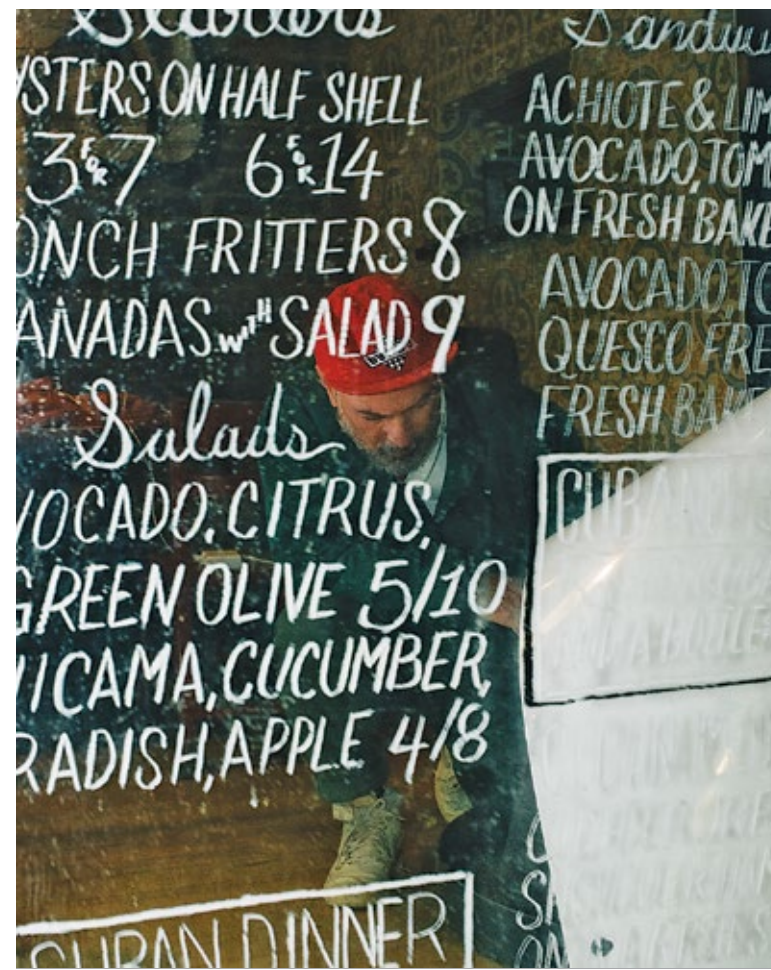 Starters
YSTERS ON HALF SHELL
3 FOR 7 6 FOR 14
ONCH FRITTERS 8
AÑADAS WITH SALAD 9
Salads
VOCADO, CITRUS,
GREEN OLIVE 5/10
JICAMA, CUCUMBER,
RADISH, APPLE 4/8
CUBAN DINNER
Sandw
ACHIOTE & LIM
AVOCADO, TOM
ON FRESH BAKE
AVOCADO, TO
QUESCO FRE
FRESH BAK
CUBANO